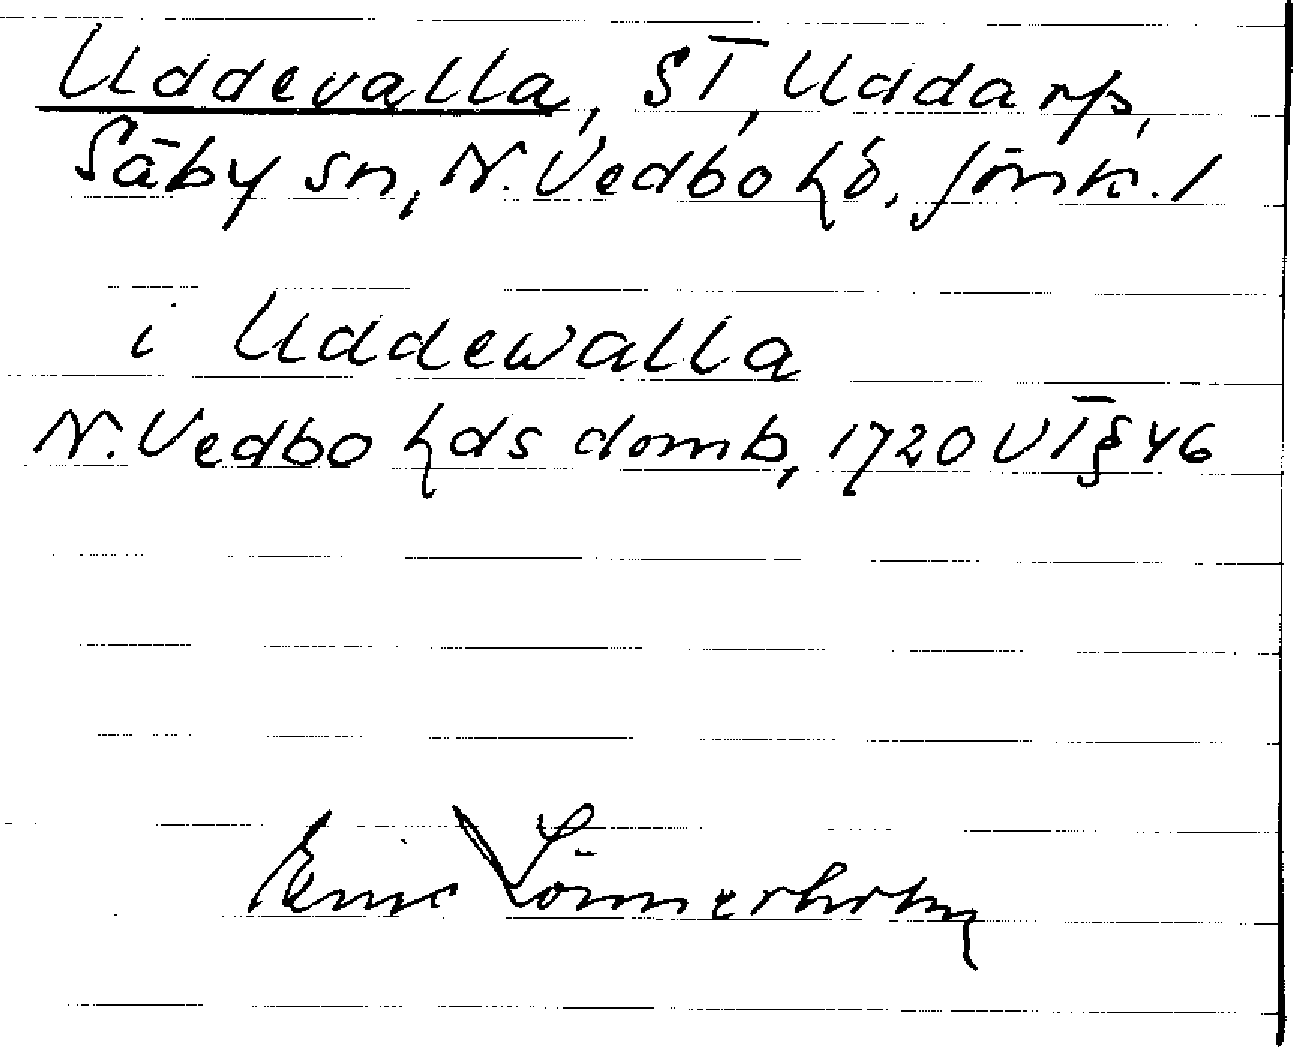 Uddevalla, ST, Uddarp,
Säby sn, N. Vedbo hd, Jönk. l
i Uddewalla
N. Vedbo hds domb, 1720 VT § 46
Einić Lönnerholm